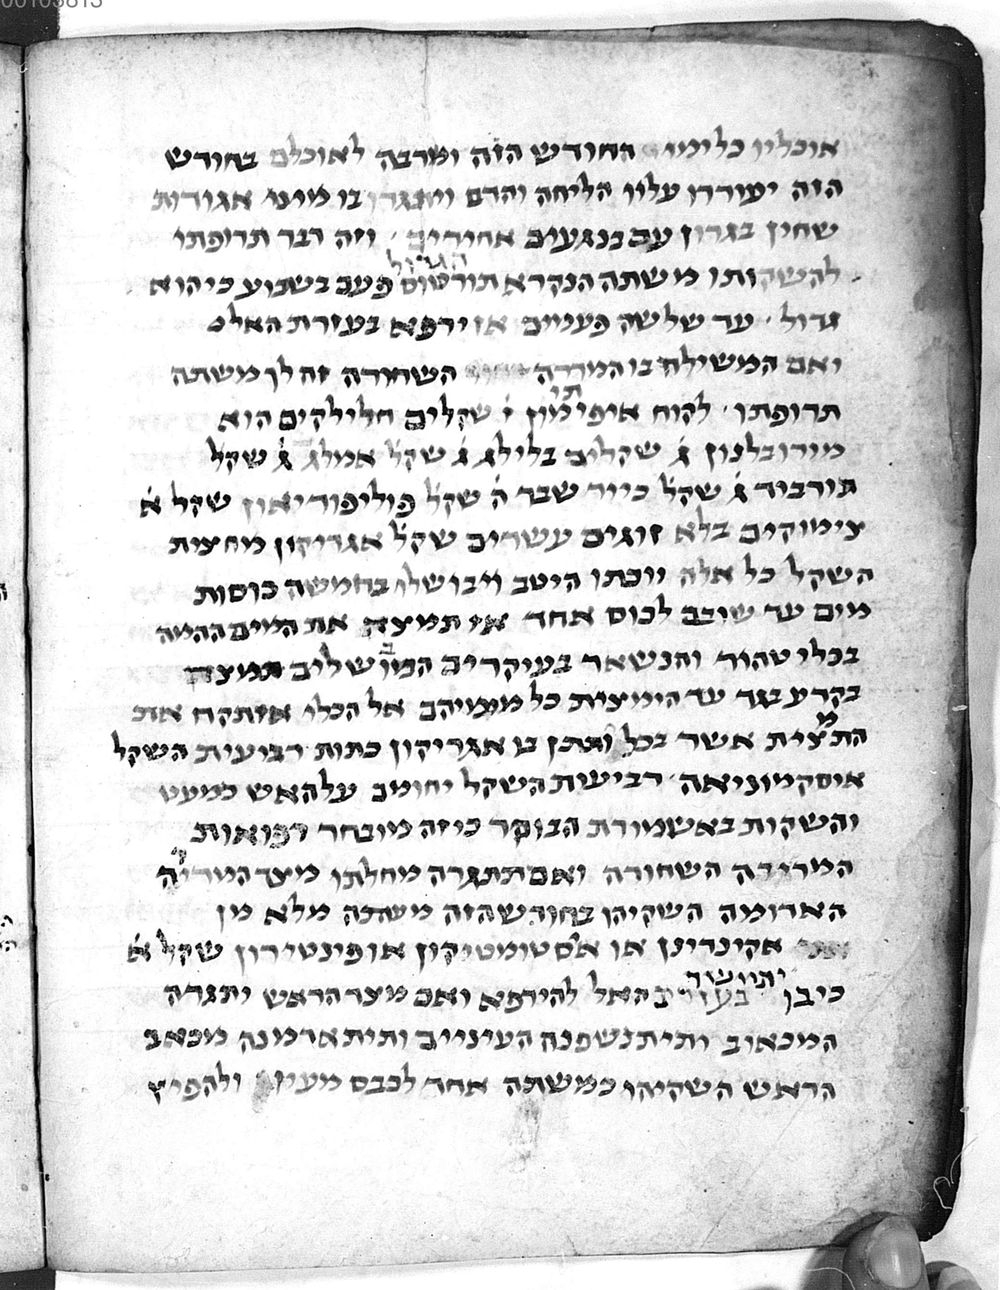 אוכליו כלימי החודש הזה ומרבה לאוכלם בחודש
הזה יעוררו עליו הליחה והדם בו מיני אגודות
שחין בגרון עם בנגעים אחירים וזה דבר תרופתו
להשקותו משתה הנקרא תורטוס הגדול פעם בשבוע כי הוא
גדול עד שלשה פעמים אז ירפא בעזרת האל
ואם המשילח בו המררה השחורה זה לך משתה
תרופתו לקוח איפיתימון י שקלים חלילקים הוא
מירובלנון ג שקלים בלילג ג שקל אמלג ג שקל
תורביד ג שקל כייר שבר ה שקל פוליפודיאון שקל א
צימוקים בלא זוגים עשרים שקל אגריקון מחצית
השקל כל אלה יוכתו היטב ויבושלו בחמשה כוסות
מים עד שובם לכוס אחד אז תמצה את המים ההמה
בכלי טהור והנשאר בעיקרים המבושלים תמצה
בקרע בגד עד הימצית כל מימיהם אל הכלי אז תקח את
התמצית אשר בכלי ותתן בו אגריקון כתות רביעית השקל
איסקמוניאה רביעית השקל יחומם על האש כמעט
והשקות באשמורת הבוקר כי זה מובחר רפואות
המרירה השחורה ואם תתגרה מחלתו מצד המרירה
האדומה השקיהו בחודש הזה משתה מלא מן
אקינדינן או אסטומטיקון או פינטירון שקל א
כי בן יתיישר בעזרת האל להירפא ואם מצד הראש יתגרה
המכאוב ותיתנשפנה העינייים ותיתארמנה מכאב
הראש השקיהו כמשתה אחד לכבס מעיו ולהפיץ